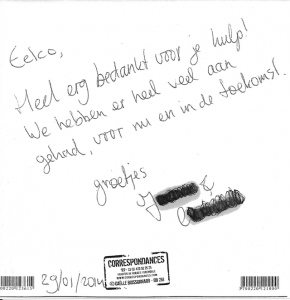 Eelco,
Heel erg bedankt voor je hulp!
We hebben er heel veel aan
gehad, voor nu en in de toekomst.
groetjes
J
&
29/01/2014
CORRESPONDANCES